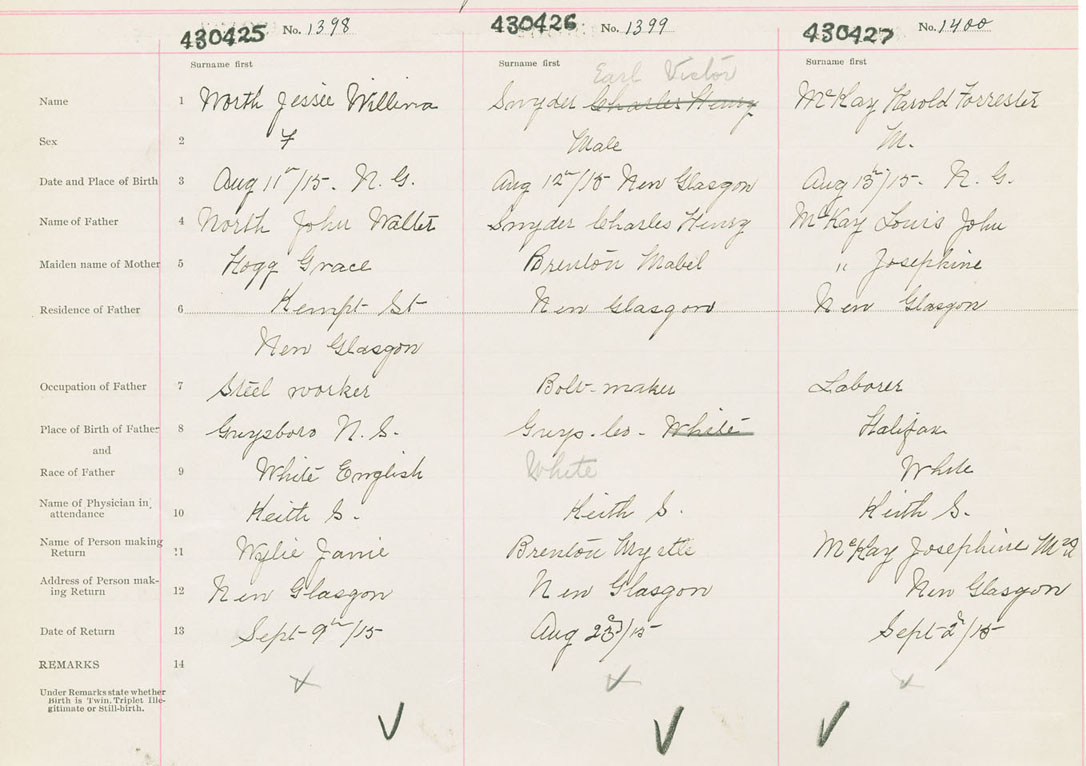 430425 No. 1398 430426 No. 1399 430427 No. 1400
Surname first Surname first Surname first
Earl Victor
Name 1 North Jessie Willena Snyder Charles Henry McKay Harold Forrester
Sex 2 F Male M.
Date and Place of Birth 3 Aug 11th/15. N. G. Aug 12th/15 New Glasgow Aug 13th/15. N. G.
Name of Father 4 North John Walter Snyder Charles Henry McKay Louis John
Maiden name of Mother 5 Hogg Grace Brenton Mabel " Josephine
Residence of Father 6 Kempt St New Glasgow New Glasgow
New Glasgow
Occupation of Father 7 Steel worker Bolt-maker Laborer
Place of Birth of Father 8 Guysboro N. S. Guys. Co - White Halifax
and
Race of Father 9 White English White White
Name of Physician in
attendance 10 Keith S. Keith S. Keith S.
Name of Person making
Return 11 Wylie Janie Brenton Myrtle McKay Josephine Mrs
Address of Person mak-
ing Return 12 New Glasgow New Glasgow New Glasgow
Date of Return 13 Sept 9th/15 Aug /15 Sept 2nd/15
REMARKS 14
Under Remarks state whether
Birth is Twin, Triplet Ille-
gitimate or Still-birth.